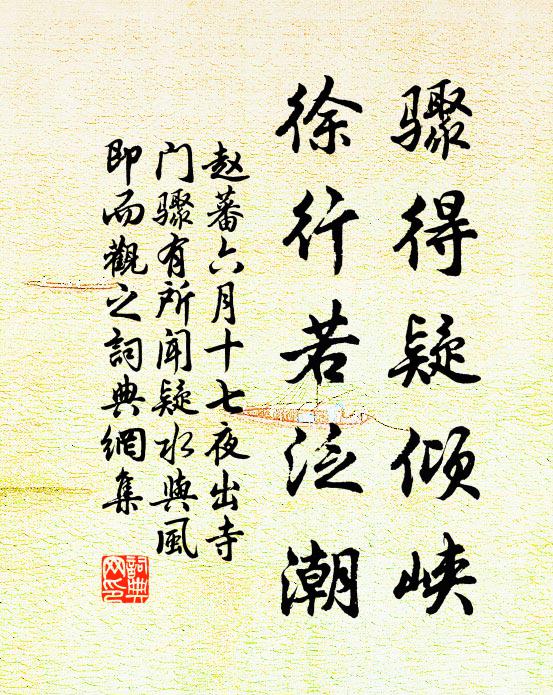 骤得疑倾峡
徐行若泛潮
赵蕃六月十七夜出寺
门骤有所闻疑水与风
即而觀之詞典網集
詞典
网印